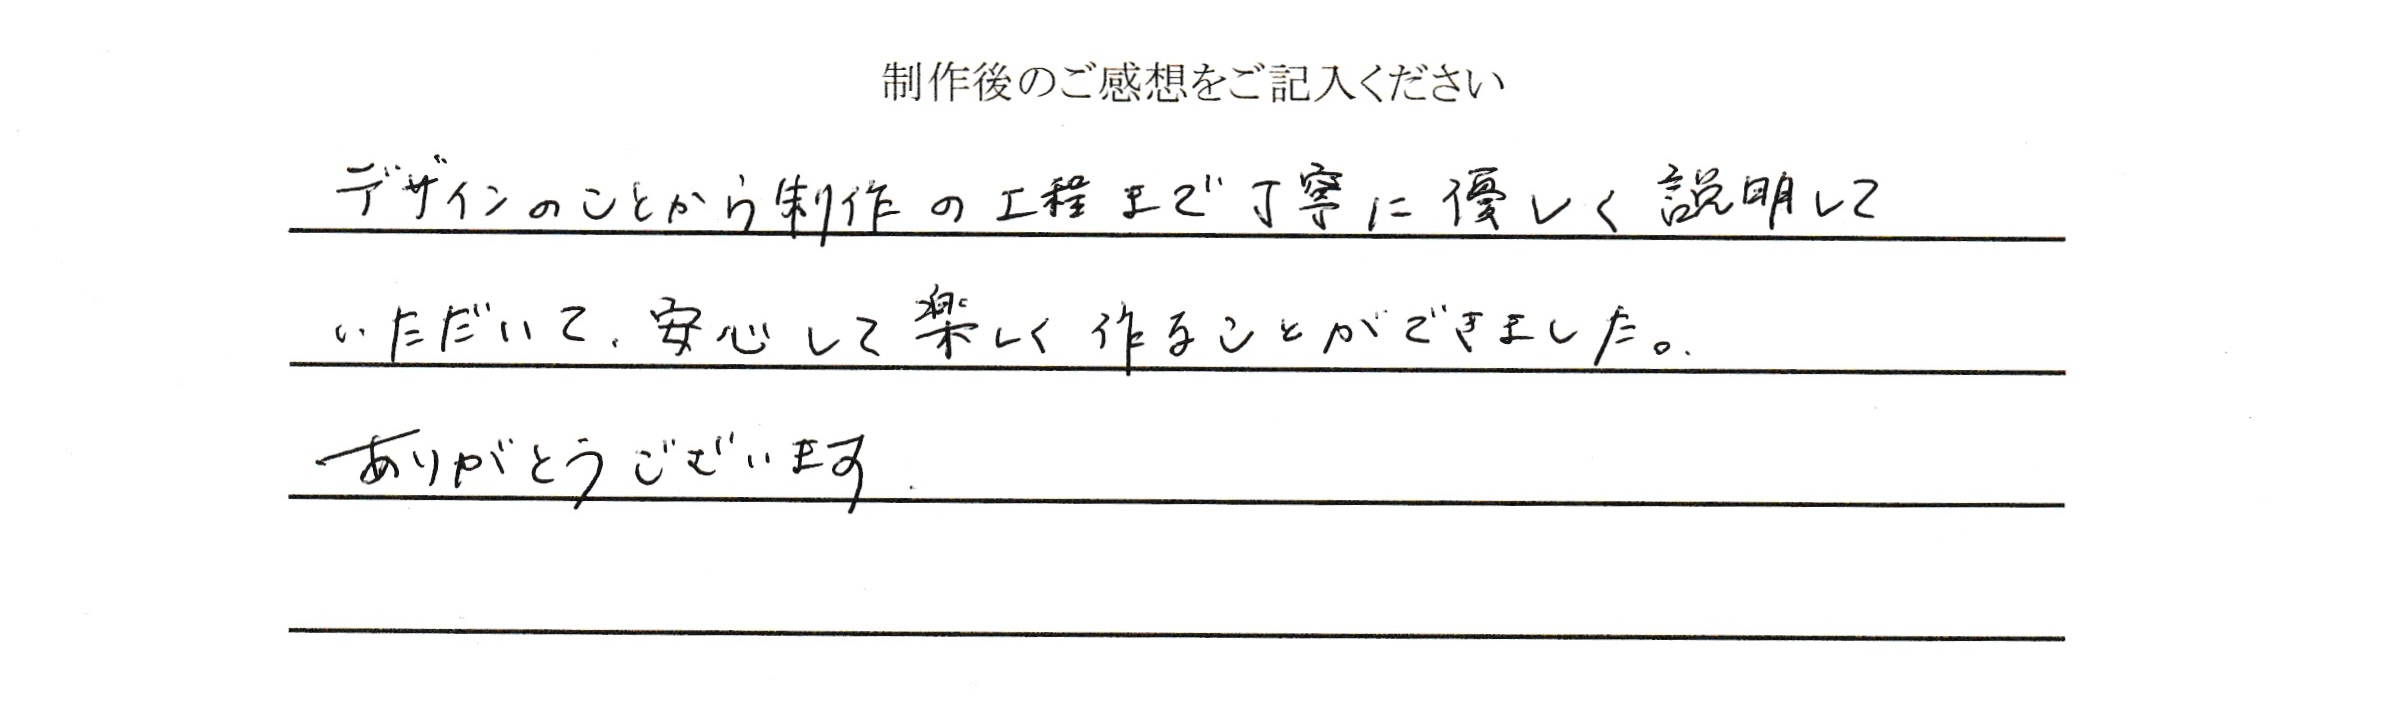 制作後のご感想をご記入ください
デザインのことから制作の工程まで丁寧に優しく説明して
いただいて、安心して楽しく作ることができました。
ありがとうございます